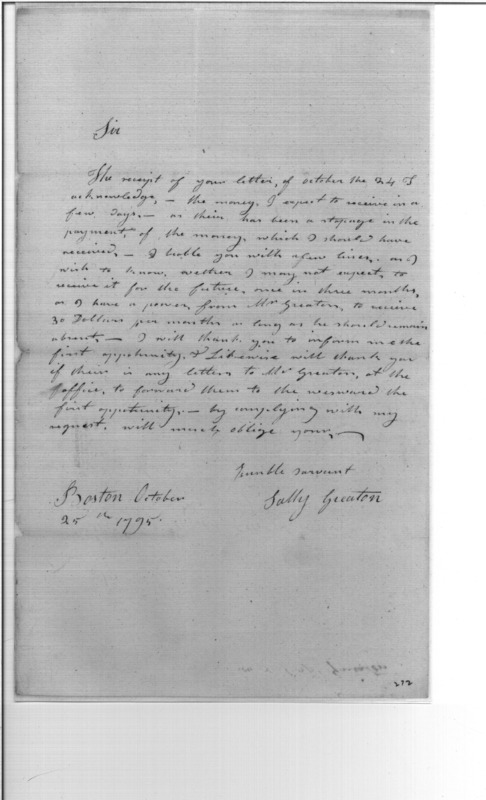 Sir
The receipt of your letter, of october the 24 I
acknowledge, – the money, I expect to receive in a
few days, – as their has been a stopage in the
payment, of the money, which I should have
received, – I troble you with a few lines, as I
wish to know, wether I may not expect, to
receive it for the future, once in three months,
as I have a power, from Mr Greaton, to receive
30 Dollars per months as long as he should remain
absent, – I will thank you to inform me the
first oppetunity, & Likewise will thank you
if their is any letters to Mr Greaton, at the
office, to forward them to the westward the
first oppetunity, – by complying with my
request, will much oblige your, –
humble sarvant
Sally Greaton
Boston October
25th 1795.
272